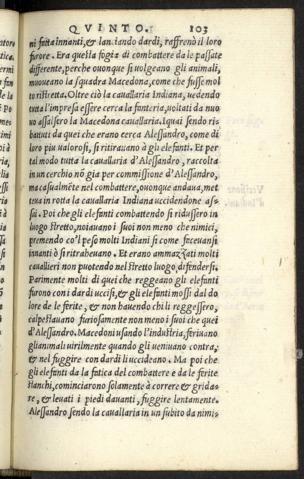 QVINTO. 103
ni fatta innanti, & lanciando dardi, raffrenò il loro
furore. Era questa fogia di combattere da le passate
differente, perche ouunque si uolgeano gli animali,
moueano la squadra Macedona, come che fusse mol
to ristretta. Oltre ciò la cauallaria Indiana, uedendo
tutta l'impresa essere cerca la fantaria, uoltati da nuo
uo assalsero la Macedona cauallaria. I quai sendo ri=
battuti da quei che erano cerca Alessandro, come di
loro piu ualorosi, si ritirauano à gli elefanti. Et per
tal modo tutta la cauallaria d'Alessandro, raccolta
in un cerchio nõ gia per commissione d'Alessandro,
ma casualmẽte nel combattere, ouonque andaua, met
teua in rotta la cauallaria Indiana uccidendone as=
sai. Poi che gli elefanti combattendo si ridussero in
luogo stretto, noiauano i suoi non meno che nimici,
premendo co'l peso molti Indiani si come faceuansi
innanti ò si ritrabeuano. Et erano ammazzati molti
cauallieri non puotendo nel stretto luogo, difendersi.
Parimente molti di quei che reggeano gli elefanti
furono con i dardi uccisi, & gli elefanti mossi dal do
lore de le ferite, & non hauendo chi li reggessero,
calpestauano furiosamente non meno i suoi che quei
d'Alessandro. Macedoni usando l'industria, feriuano
gli animali uirilmente quando gli ueniuano contra,
& nel fuggire con dardi li uccideano. Ma poi che
gli elefanti da la fatica del combattere e da le ferite
stanchi, cominciarono solamente à correre & grida=
re, & leuati i piedi dauanti, fuggire lentamente.
Alessandro sendo la cauallaria in un subito da nimi=